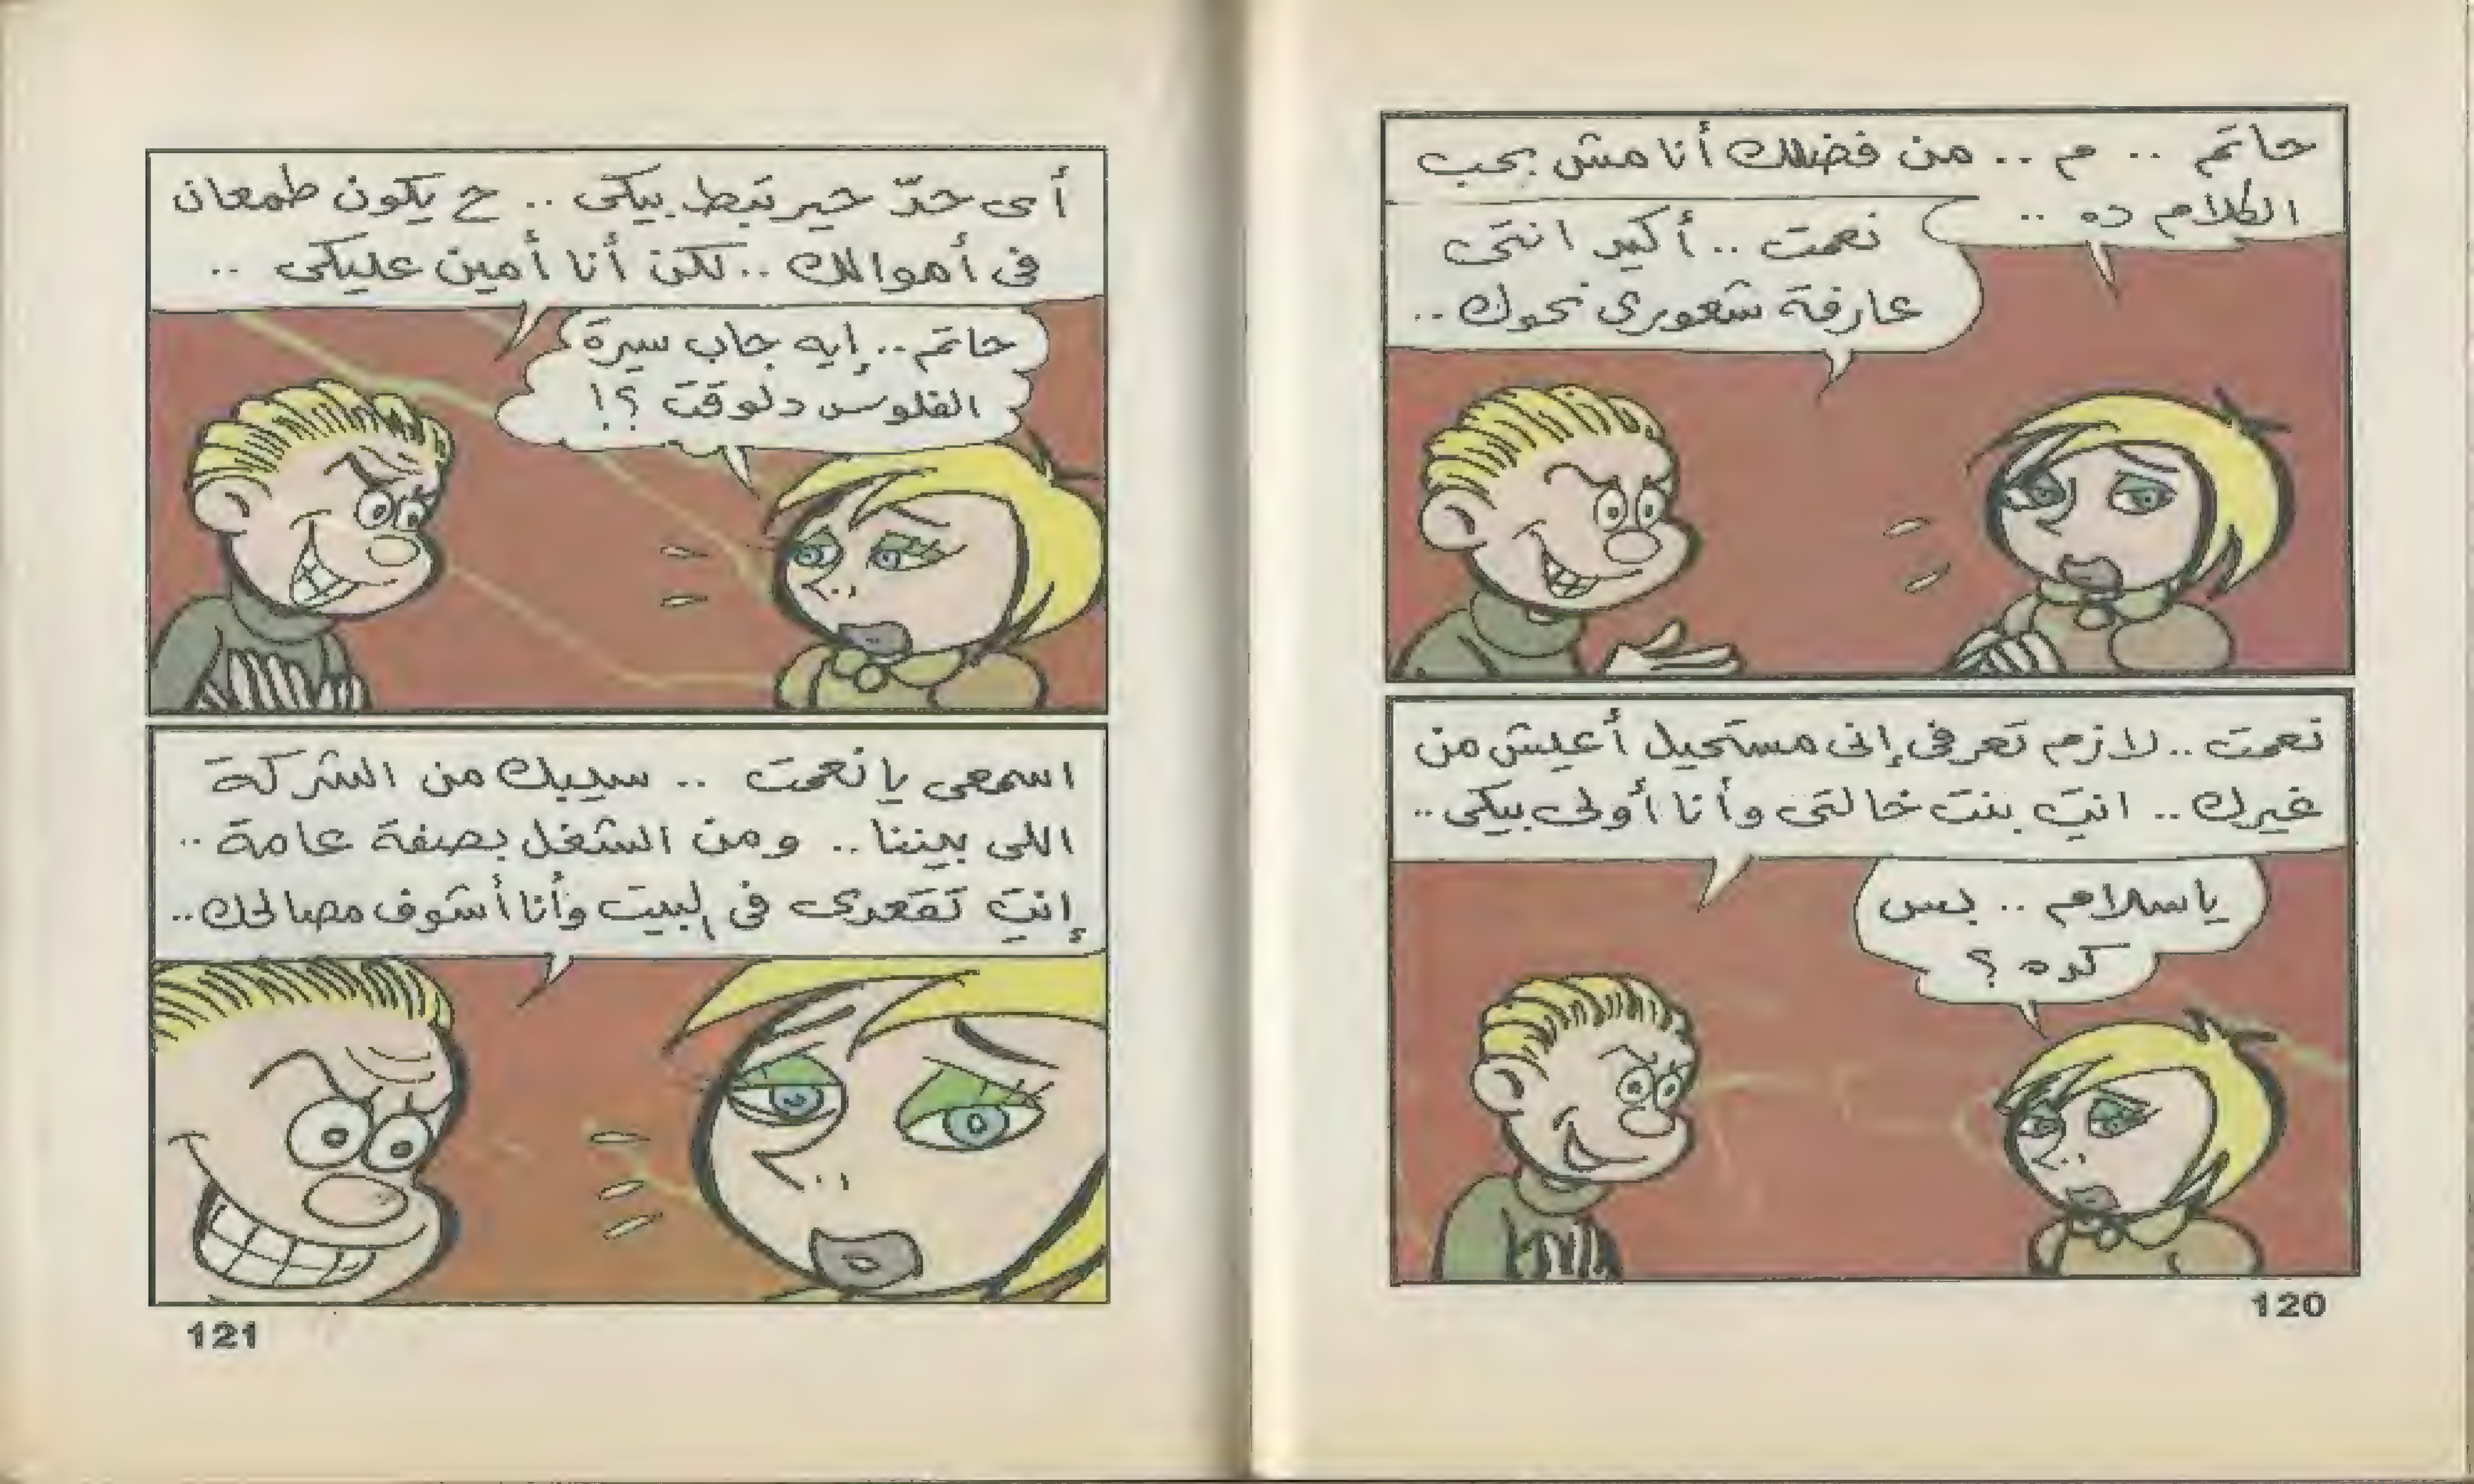 حاتم .. م .. من فضلك أنا مش بحب
الكلام ده ..
نعمت .. أكيد انتى
عارفة شعورى نحوك ..
نعمت .. لازم تعرفى إنى مستحيل أعيش من
غيرك .. انتِ بنت خالتى وأنا أولى بيكى ..
ياسلام .. بس
كده ؟
120
أى حدّ حيرتبط بيكى .. ح يكون طمعان
فى أموالك .. لكن أنا أمين عليكى ..
حاتم .. إيه جاب سيرة
الفلوس دلوقت ؟!
اسمعى يا نعمت .. سيبك من الشركة
اللى بيننا .. ومن الشغل بصفة عامة ..
إنتِ تقعدى فى البيت وأنا أشوف مصالحك ..
121